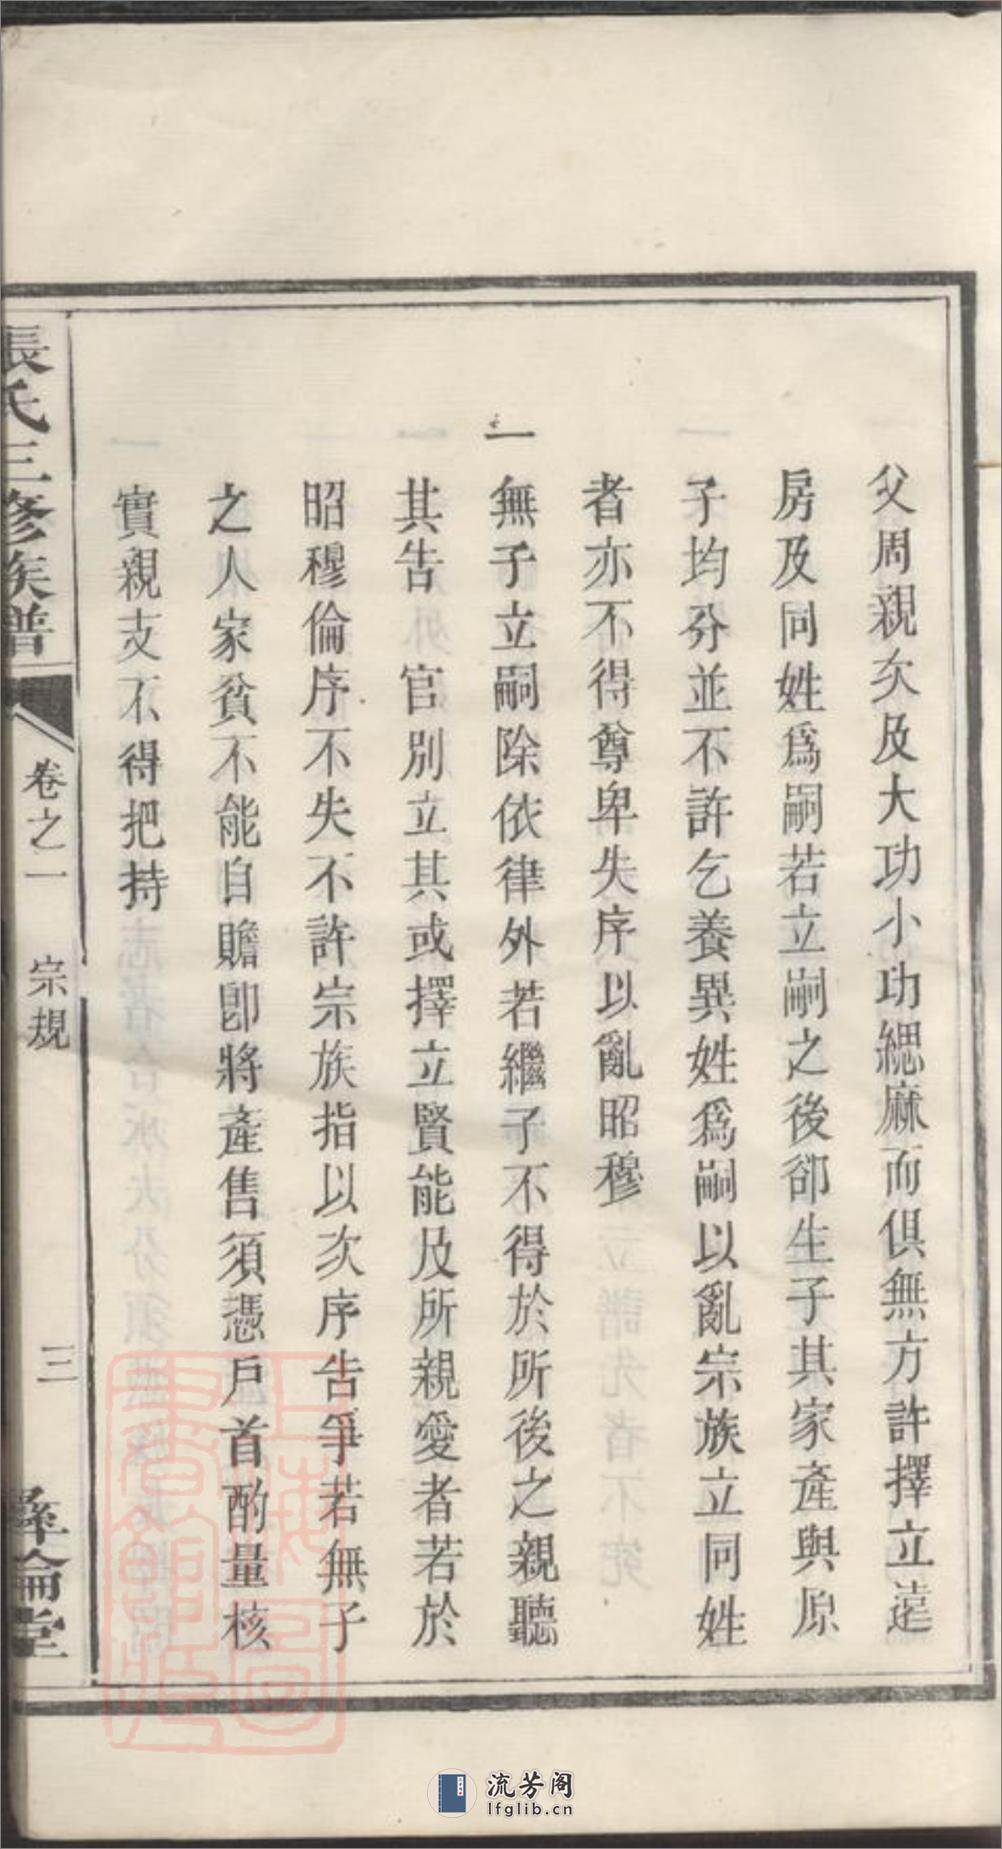 父周親次及大功小功緦麻而俱無方許擇立遠
房及同姓爲嗣若立嗣之後卻生子其家產與原
子均分並不許乞養異姓爲嗣以亂宗族立同姓
者亦不得尊卑失序以亂昭穆
一無子立嗣除依律外若繼子不得於所後之親聽
其告 官別立其或擇立賢能及所親愛者若於
昭穆倫序不失不許宗族指以次序告爭若無子
之人家貧不能自贍卽將產售須憑戶首酌量核
實親支不得把持
張氏三修族譜
卷之一 宗規
三
彝倫堂
流芳阁
lfglib.cn